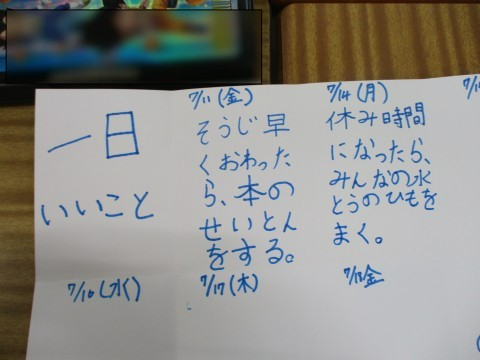 一日
いいこと
7/11(金)
そうじ早
くおわった
ら、本の
せいとん
をする。
7/14(月)
休み時間
になったら、
みんなの水
とうのひもを
まく。
7/16(水)
7/17(木)
7/18金